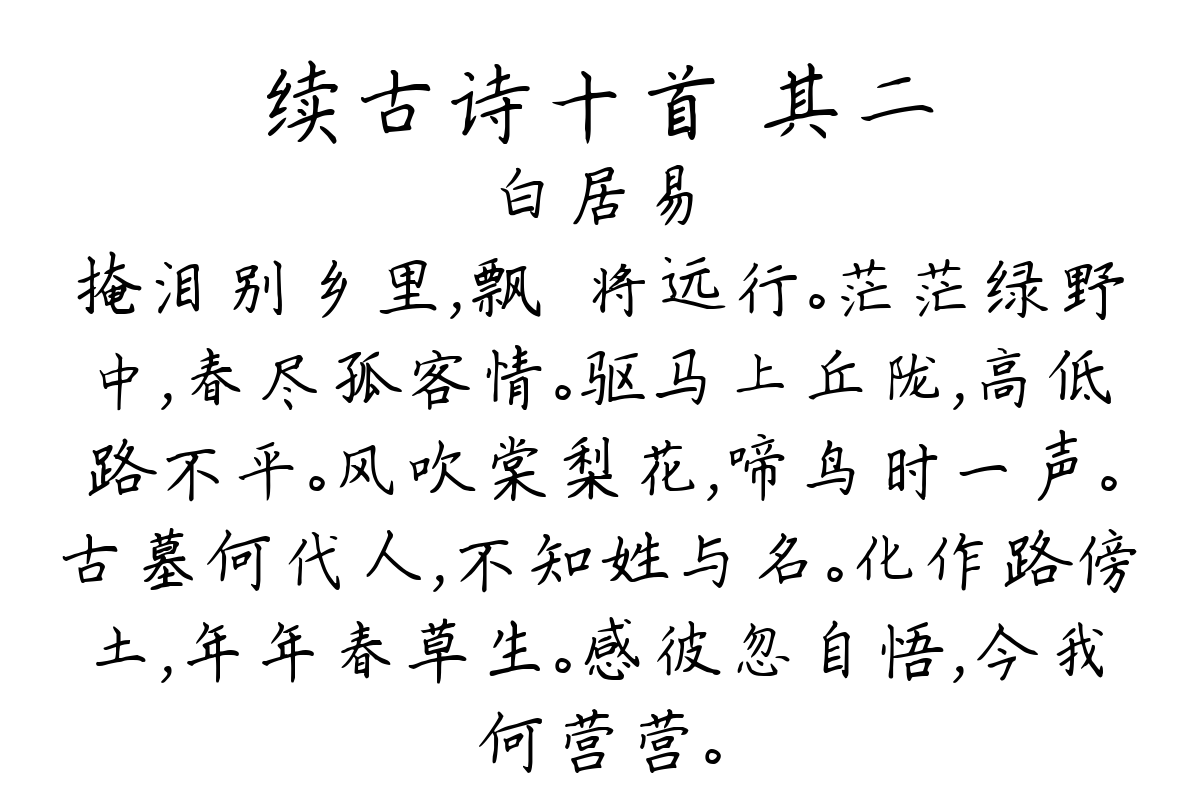 续古诗十首 其二
白居易
掩泪别乡里,飘 将远行。茫茫绿野
中,春尽孤客情。驱马上丘陇,高低
路不平。风吹棠梨花,啼鸟时一声。
古墓何代人,不知姓与名。化作路傍
土,年年春草生。感彼忽自悟,今我
何营营。